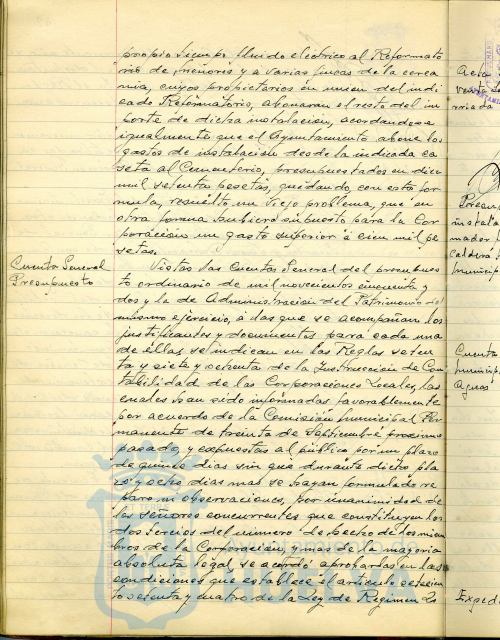 propio tiempo fluido eléctrico al Reformato
rio de menores y a varias fincas de la cerca
nía, cuyos propietarios en union del indi
cado Reformatorio, abonaran el resto del im
porte de dicha instalación, acordandose
igualmente que el Ayuntamiento abone los
gastos de instalacion desde la indicada ca
seta al Cementerio, presupuestados en diez
mil setenta pesetas, quedando, con esta for
mula, resuelto un viejo problema, que en
otra forma hubiera supuesto para la Cor
poración un gasto superior á cien mil pe
setas.
Cuenta General
Presupuesto
Vistas las Cuentas General del presupues
to ordinario de mil novecientos cincuenta y
dos y la de Administracion del Patrimonio del
mismo ejercicio, a las que se acompañan los
justificantes y documentos para cada una
de éllas se indican en las Reglas seten
ta y siete y ochenta de la Instrucción de Con
tabilidad de las Corporaciones Locales, las
cuales han sido informadas favorablemente
por acuerdo de la Comisión Municipal Per
manente de treinta de Septiembre proximo
pasado, y expuestas al público por un plazo
de quince dias sin que durante dicho pla
zo y ocho dias mas se hayan formulado re
paro ni observaciones, por unanimidad de
los señores concurrentes que constituyen los
dos tercios del número de hecho de los miem
bros de la Corporación, y mas de la mayoria
absoluta legal, se acordó aprobarlas en las
condiciones que establece el articulo setecien
tos setenta y cuatro de la Ley de Regimen Lo
Acta
Presu
instala
mador
caldera
municip
Cuenta
municip
aguas
Exped